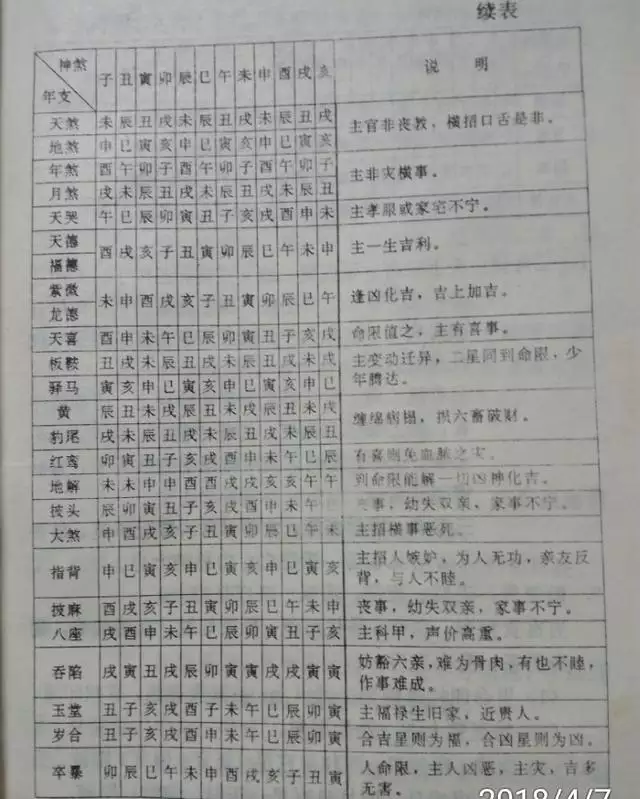 续表
神煞 子 丑 寅 卯 辰 巳 午 未 申 酉 戌 亥 说 明
年支
天煞 未 辰 丑 戌 未 辰 丑 戌 未 辰 丑 戌 主官非丧教,横招口舌是非。
地煞 申 巳 寅 亥 申 巳 寅 亥 申 巳 寅 亥
年煞 酉 午 卯 子 酉 午 卯 子 酉 午 卯 子 主非灾横事。
月煞 戌 未 辰 丑 戌 未 辰 丑 戌 未 辰 丑
天哭 午 巳 辰 卯 寅 丑 子 亥 戌 酉 申 未 主孝服或家宅不宁。
天德
福德 酉 戌 亥 子 丑 寅 卯 辰 巳 午 未 申 主一生吉利。
紫微
龙德 未 申 酉 戌 亥 子 丑 寅 卯 辰 巳 午 逢凶化吉,吉上加吉。
天喜 酉 申 未 午 巳 辰 卯 寅 丑 子 亥 戌 命限值之,主有喜事。
板鞍 丑 戌 未 辰 丑 戌 未 辰 丑 戌 未 戌 主变动迁异,二星同到命限,少
年腾达。
驿马 寅 亥 申 巳 寅 亥 申 巳 寅 亥 申 巳
黄 辰 丑 未 戌 辰 丑 未 戌 辰 丑 未 戌 缠绵病榻,损六畜破财。
豹尾 戌 未 辰 丑 戌 未 辰 丑 戌 未 辰 丑
红鸾 卯 寅 丑 子 亥 戌 酉 申 未 午 巳 辰 有喜则免血脉之灾。
地解 未 未 申 申 酉 酉 戌 戌 亥 亥 午 午 到命限能解一切凶神化吉。
披头 辰 卯 寅 丑 子 亥 戌 酉 申 未 午 丧事,幼失双亲,家事不宁。
大煞 申 酉 戌 亥 子 丑 寅 卯 辰 巳 午 未 主招横事恶死。
指背 申 巳 寅 亥 申 巳 寅 亥 申 巳 寅 亥 主招人嫉妒,为人无功,亲友反
背,与人不睦。
披麻 酉 戌 亥 子 丑 寅 卯 辰 巳 午 未 申 丧事,幼失双亲,家事不宁。
八座 戌 酉 申 未 午 巳 辰 卯 寅 丑 子 亥 主科甲,声价高重。
吞陷 戌 寅 丑 戌 辰 卯 寅 寅 戌 戌 寅 寅 妨豁六亲,难为骨肉,有也不睦,
作事难成。
玉堂 丑 子 亥 戌 酉 子 未 午 巳 辰 卯 寅 主福禄生旧家,近贵人。
岁合 丑 子 亥 戌 酉 申 未 午 巳 辰 卯 寅 合吉星则为福,合凶星则为凶。
卒暴 卯 辰 巳 午 未 申 酉 戌 亥 子 丑 寅 人命限,主人凶恶,主灾,吉多
无害。
2018/4/7